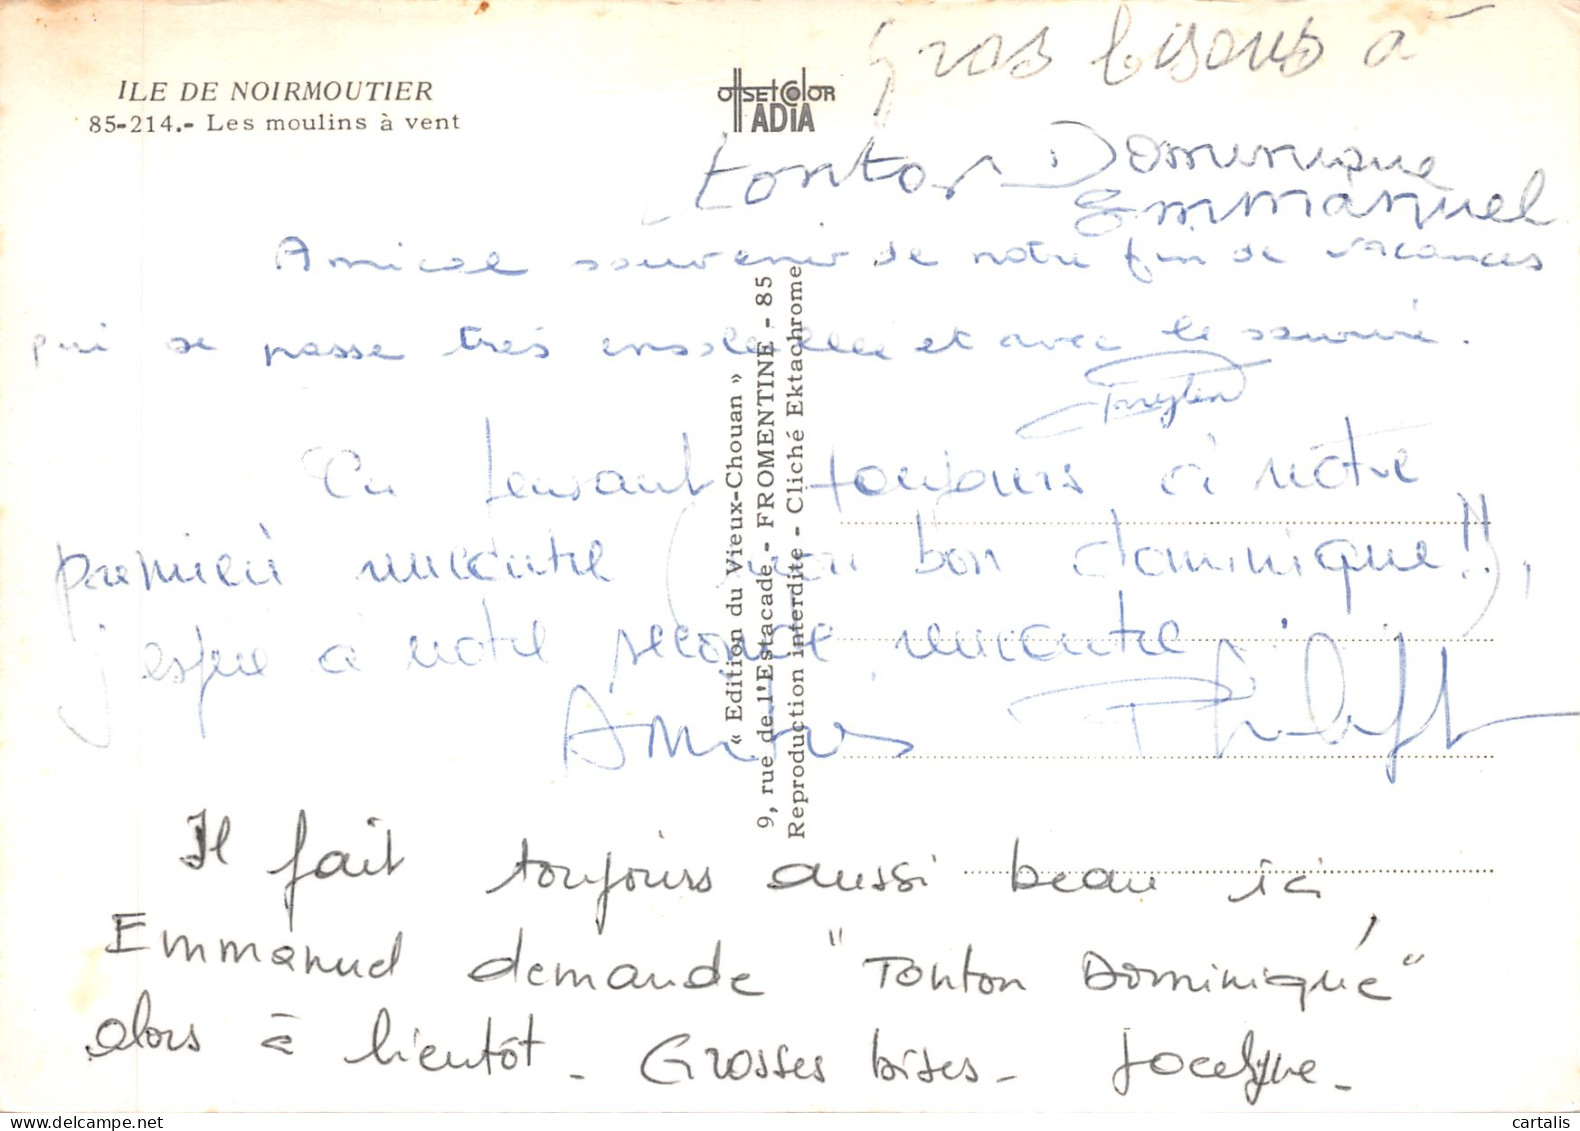 ILE DE NOIRMOUTIER
85-214.- Les moulins à vent
OffSEt COlOR
ADIA
Gros bisous à
tonton Dominique
Emmanuel
Amical souvenir de notre fin de vacances
qui se passe très ensoleillée et avec le sourire.
En pensant toujours à notre
premièr rencontre (mon bon dominique!!),
j'espère à notre seconde rencontre.
Amitiés
Il fait toujours aussi beau ici,
Emmanuel demande "Tonton Dominique"
alors à bientôt - Grosses bises - Jocelyne -
« Edition du Vieux-Chouan »
9, rue de l'Estacade - FROMENTINE - 85
Reproduction interdite - Cliché Ektachrome
cartalis